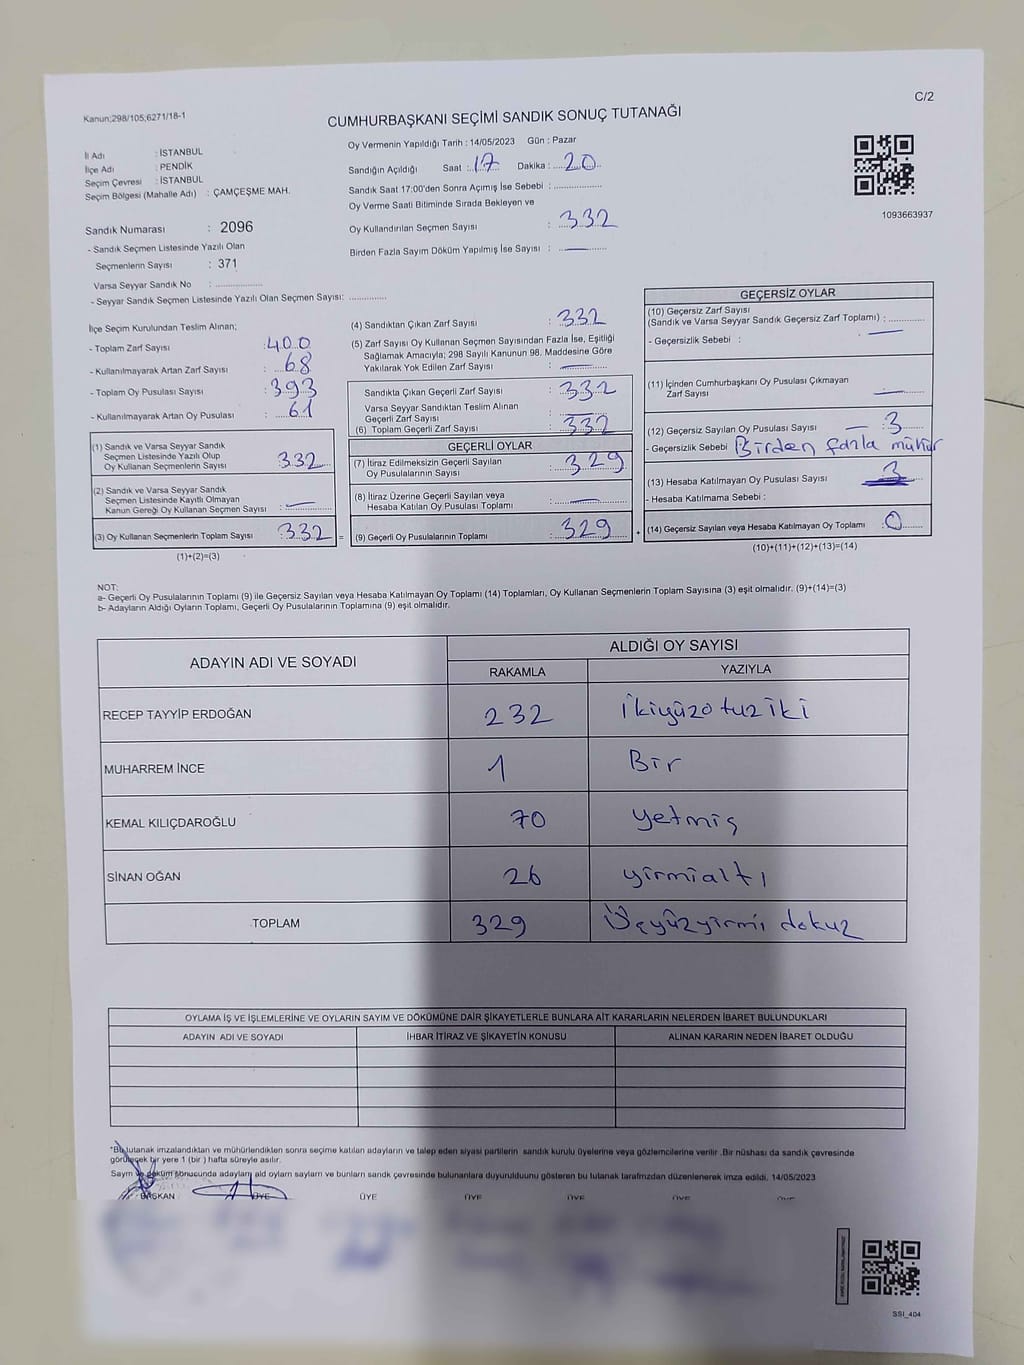 C/2
Kanun;298/105;6271/18-1
CUMHURBAŞKANI SEÇİMİ SANDIK SONUÇ TUTANAĞI
İl Adı : İSTANBUL
İlçe Adı : PENDİK
Seçim Çevresi : İSTANBUL
Seçim Bölgesi (Mahalle Adı) : ÇAMÇEŞME MAH.
Sandık Numarası : 2096
- Sandık Seçmen Listesinde Yazılı Olan
Seçmenlerin Sayısı : 371
Varsa Seyyar Sandık No : ................
- Seyyar Sandık Seçmen Listesinde Yazılı Olan Seçmen Sayısı: .............
Oy Vermenin Yapıldığı Tarih : 14/05/2023 Gün : Pazar
Sandığın Açıldığı Saat : 17 Dakika : 20
Sandık Saat 17:00'den Sonra Açımış İse Sebebi : ................
Oy Verme Saati Bitiminde Sırada Bekleyen ve
Oy Kullandırılan Seçmen Sayısı : 332
Birden Fazla Sayım Döküm Yapılmış İse Sayısı : —
1093663937
İlçe Seçim Kurulundan Teslim Alınan;
- Toplam Zarf Sayısı : 400
- Kullanılmayarak Artan Zarf Sayısı : 68
- Toplam Oy Pusulası Sayısı : 393
- Kullanılmayarak Artan Oy Pusulası : 61
(1) Sandık ve Varsa Seyyar Sandık
Seçmen Listesinde Yazılı Olup
Oy Kullanan Seçmenlerin Sayısı : 332
(2) Sandık ve Varsa Seyyar Sandık
Seçmen Listesinde Kayıtlı Olmayan
Kanun Gereği Oy Kullanan Seçmen Sayısı : —
(3) Oy Kullanan Seçmenlerin Toplam Sayısı : 332 =
(1)+(2)=(3)
(4) Sandıktan Çıkan Zarf Sayısı : 332
(5) Zarf Sayısı Oy Kullanan Seçmen Sayısından Fazla İse, Eşitliği
Sağlamak Amacıyla; 298 Sayılı Kanunun 98. Maddesine Göre
Yakılarak Yok Edilen Zarf Sayısı : —
Sandıkta Çıkan Geçerli Zarf Sayısı : 332
Varsa Seyyar Sandıktan Teslim Alınan
Geçerli Zarf Sayısı : —
(6) Toplam Geçerli Zarf Sayısı : 332
GEÇERLİ OYLAR
(7) İtiraz Edilmeksizin Geçerli Sayılan
Oy Pusulalarının Sayısı : 329
(8) İtiraz Üzerine Geçerli Sayılan veya
Hesaba Katılan Oy Pusulası Toplamı : —
(9) Geçerli Oy Pusulalarının Toplamı : 329 +
GEÇERSİZ OYLAR
(10) Geçersiz Zarf Sayısı
(Sandık ve Varsa Seyyar Sandık Geçersiz Zarf Toplamı) : —
- Geçersizlik Sebebi :
(11) İçinden Cumhurbaşkanı Oy Pusulası Çıkmayan
Zarf Sayısı : —
(12) Geçersiz Sayılan Oy Pusulası Sayısı — 3
- Geçersizlik Sebebi Birden fazla mühür
(13) Hesaba Katılmayan Oy Pusulası Sayısı : 3
- Hesaba Katılmama Sebebi :
(14) Geçersiz Sayılan veya Hesaba Katılmayan Oy Toplamı : 0
(10)+(11)+(12)+(13)=(14)
NOT:
a- Geçerli Oy Pusulalarının Toplamı (9) ile Geçersiz Sayılan veya Hesaba Katılmayan Oy Toplamı (14) Toplamları, Oy Kullanan Seçmenlerin Toplam Sayısına (3) eşit olmalıdır. (9)+(14)=(3)
b- Adayların Aldığı Oyların Toplamı, Geçerli Oy Pusulalarının Toplamına (9) eşit olmalıdır.
ADAYIN ADI VE SOYADI ALDIĞI OY SAYISI
RAKAMLA YAZIYLA
RECEP TAYYİP ERDOĞAN 232 ikiyüzotuziki
MUHARREM İNCE 1 Bir
KEMAL KILIÇDAROĞLU 70 yetmiş
SİNAN OĞAN 26 yirmialtı
TOPLAM 329 Üçyüzyirmi dokuz
OYLAMA İŞ VE İŞLEMLERİNE VE OYLARIN SAYIM VE DÖKÜMÜNE DAİR ŞİKAYETLERLE BUNLARA AİT KARARLARIN NELERDEN İBARET BULUNDUKLARI
ADAYIN ADI VE SOYADI İHBAR İTİRAZ VE ŞİKAYETİN KONUSU ALINAN KARARIN NEDEN İBARET OLDUĞU
*Bu tutanak imzalandıktan ve mühürlendikten sonra seçime katılan adayların ve talep eden siyasi partilerin sandık kurulu üyelerine veya gözlemcilerine verilir .Bir nüshası da sandık çevresinde
görülecek bir yere 1 (bir ) hafta süreyle asılır.
Sayım ve döküm sonucunda adayların aldı oyların sayların ve bunların sandk çevresinde bulunanlara duyurulduunu gösteren bu tutanak tarafmzdan düzenlenerek imza edildi. 14/05/2023
BAŞKAN ÜYE ÜYE ÜYE ÜYE ÜYE ÜYE
SSI_404